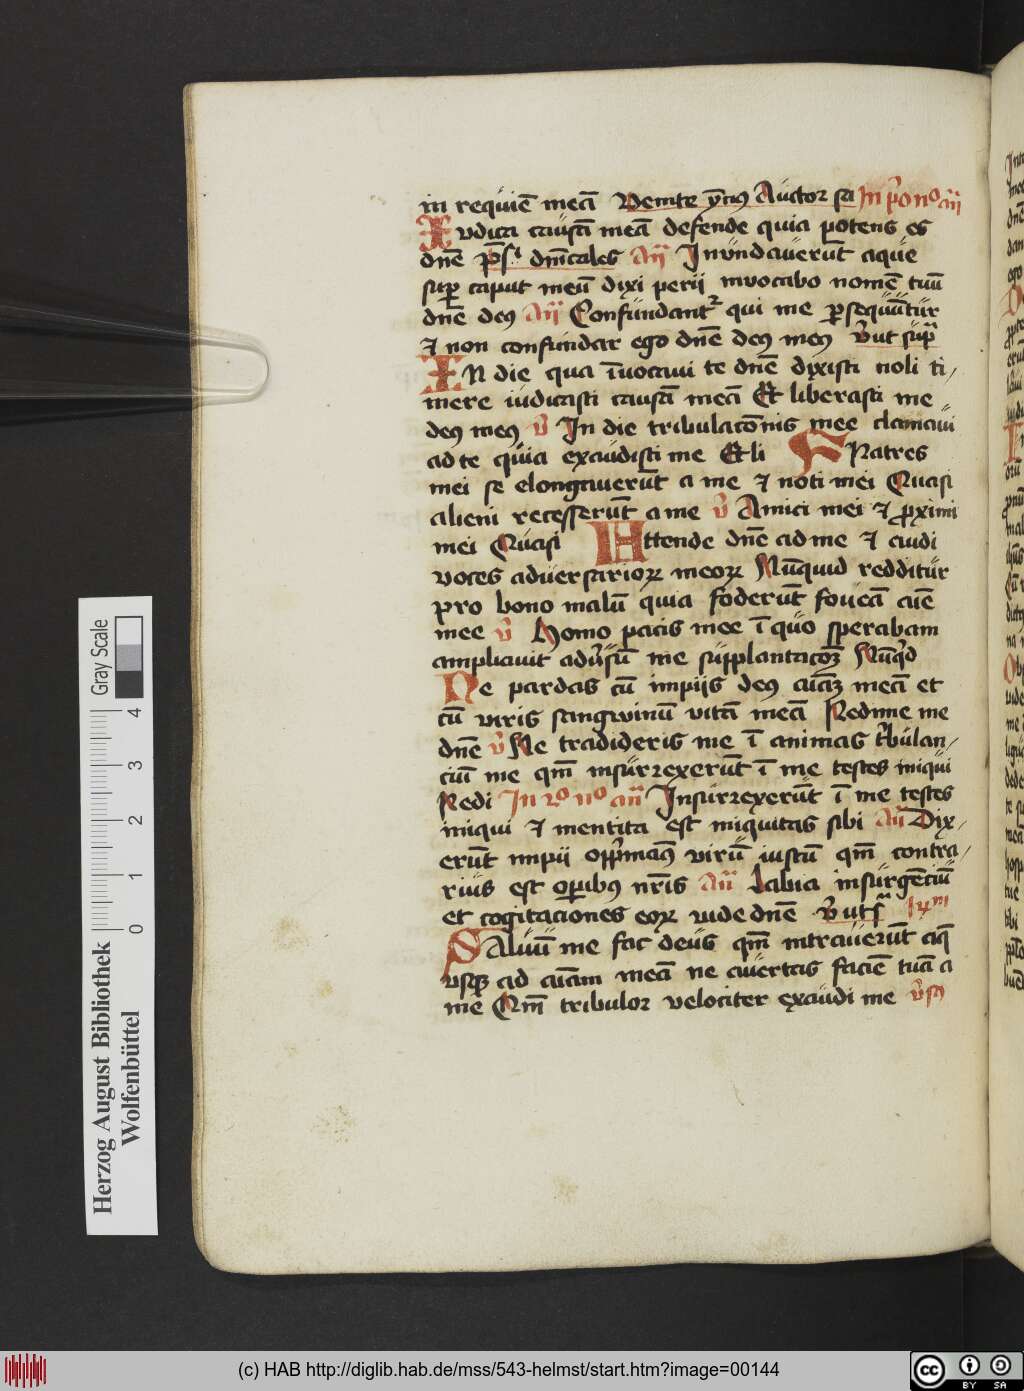 in requiē meā Venite ymꝰ Auctor sa In p̄o noº an̄
Iudica causā meā defende quia potens es
dn̄e ps̄ dn̄icales an̄ Inundauerūt aque
sup̱ caput meū dixi perij inuocabo nomē tuū
dn̄e deꝰ an̄ Confundant᷑ qui me ꝑsequūtur
⁊ non confundar ego dn̄e deꝰ meꝰ v̄ ut sup̄
In die qua īuocaui te dn̄e dixisti noli ti/
mere iudicasti causā meā Et liberasti me
deꝰ meꝰ v̄ In die tribulacōnis mee clamaui
ad te quia exaudisti me Et li Fratres
mei se elongauerūt a me ⁊ noti mei Quasi
alieni recesserūt a me v̄ Amici mei ⁊ ꝓximi
mei Quasi Attende dn̄e ad me ⁊ audi
voces aduersarioꝝ meoꝝ Nūquid redditur
pro bono malū quia foderūt foueā aīe
mee v̄ Homo pacis mee ī quo sperabam
ampliauit adūsū me supplantacōꝫ Nūq̄d
Ne perdas cū impijs deꝰ aīaꝫ meā et
cū viris sangwinū vitā meā Redime me
dn̄e v̄ Ne tradideris me ī animas t̄bulan/
ciū me qm̄ insurrexerūt ī me testes iniqui
Redi In 2º noº an̄ Insurrexerūt ī me testes
iniqui ⁊ mentita est iniquitas sibi an̄ Dix/
erūt impii opp̄mamꝰ virū iustū qm̄ contra/
rius est oꝑibꝰ nr̄is an̄ Labia insurgēciū
et cogitaciones eoꝝ vide dn̄e v̄ ut s̄
Saluū me fac deus qm̄ intrauerūt aq̄
vsqꝫ ad aīam meā ne auertas faciē tuā a
me Qm̄ tribulor velociter exaudi me
Herzog August Bibliothek
Wolfenbüttel
Gray Scale
0 1 2 3 4
(c) HAB http://diglib.hab.de/mss/543-helmst/start.htm?image=00144
cc BY SA